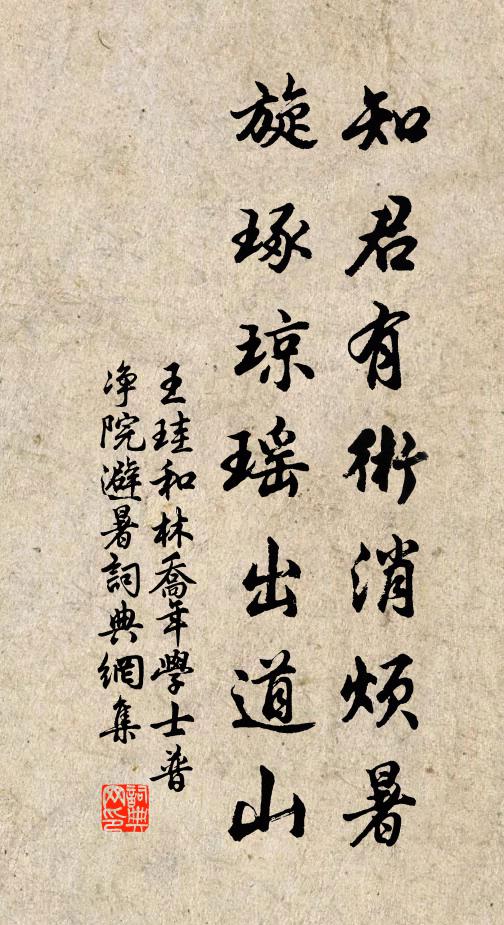 知君有術消煩暑
旋琢琼瑶出道山
王珪和林喬年學士普
净院避暑詞典網集
詞典
网印